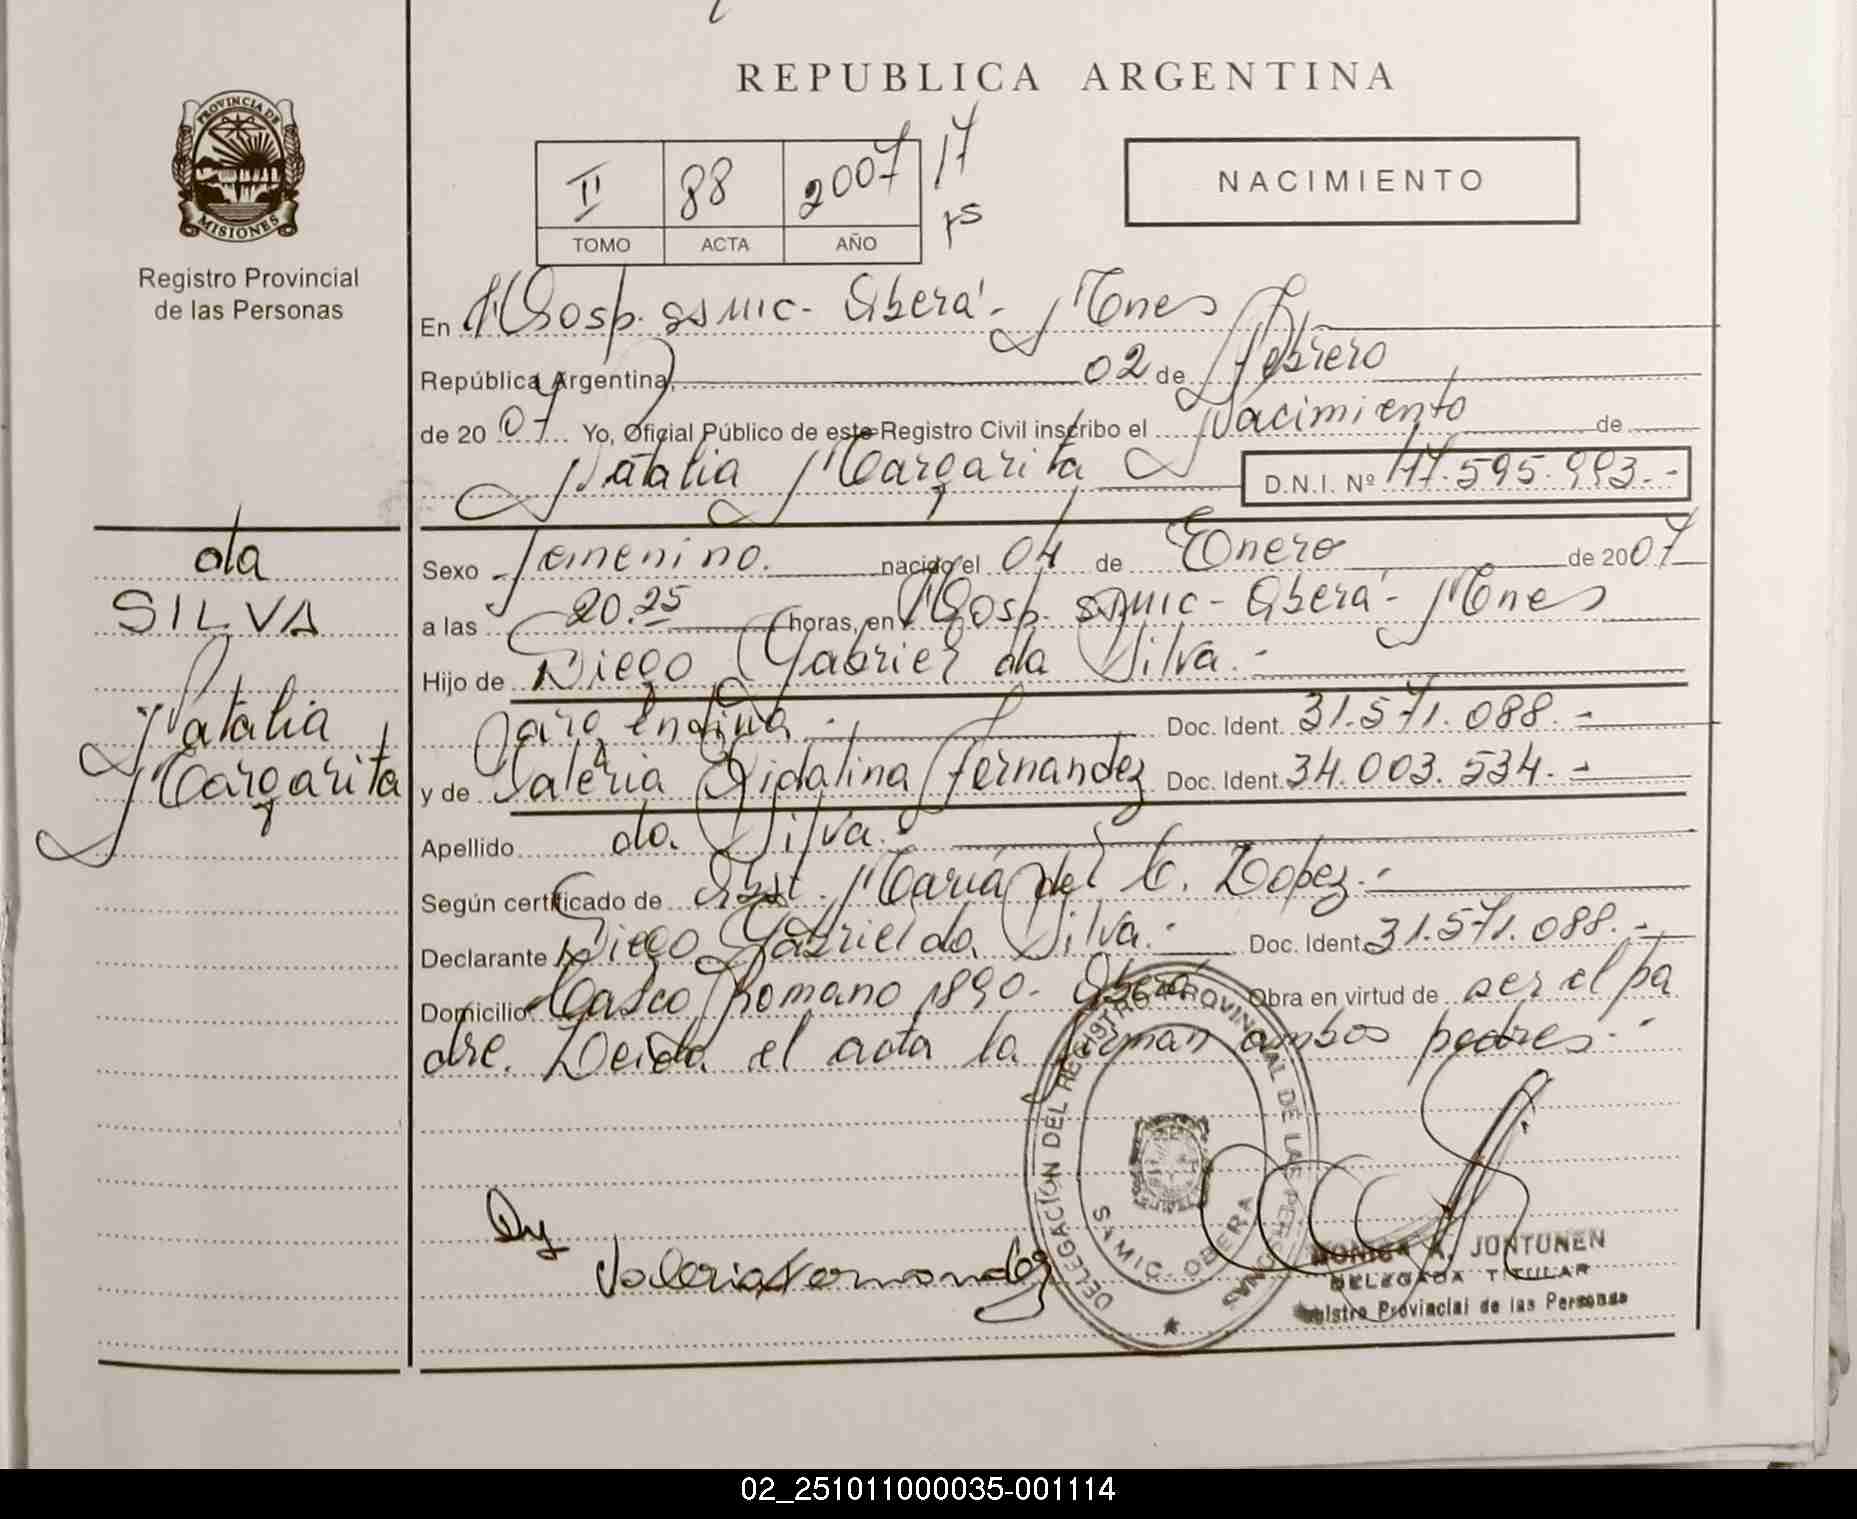 REPUBLICA ARGENTINA
PROVINCIA DE
MISIONES
Registro Provincial
de las Personas
II 88 2007 17
TOMO ACTA AÑO
NACIMIENTO
En Hosp. SAMIC - Oberá - Mnes
República Argentina, 02 de Febrero
de 20 07 Yo, Oficial Público de este Registro Civil inscribo el Nacimiento de
Natalia Margarita D.N.I. Nº 47.595.993.-
da
SILVA
Natalia
Margarita
Sexo femenino. nacido el 04 de Enero de 2007
a las 20.25 horas, en Hosp. SAMIC - Oberá - Mnes
Hijo de Diego Gabriel da Silva.-
argentina.- Doc. Ident. 31.571.088.-
y de Valeria Fernandez Doc. Ident. 34.003.534.-
Apellido da Silva.-
Según certificado de Obst. María del C. Lopez.-
Declarante Diego Gabriel da Silva.- Doc. Ident. 31.571.088.-
Domicilio Romano 1890 - Oberá Obra en virtud de ser el pa
dre. Leida el acta la firman ambos padres.-
Valeria Fernandez
DELEGACIÓN DEL REGISTRO PROVINCIAL DE LAS PERSONAS
SAMIC. OBERA
MONICA A. JUNTUNEN
DELEGADA TITULAR
Registro Provincial de las Personas
02_251011000035-001114